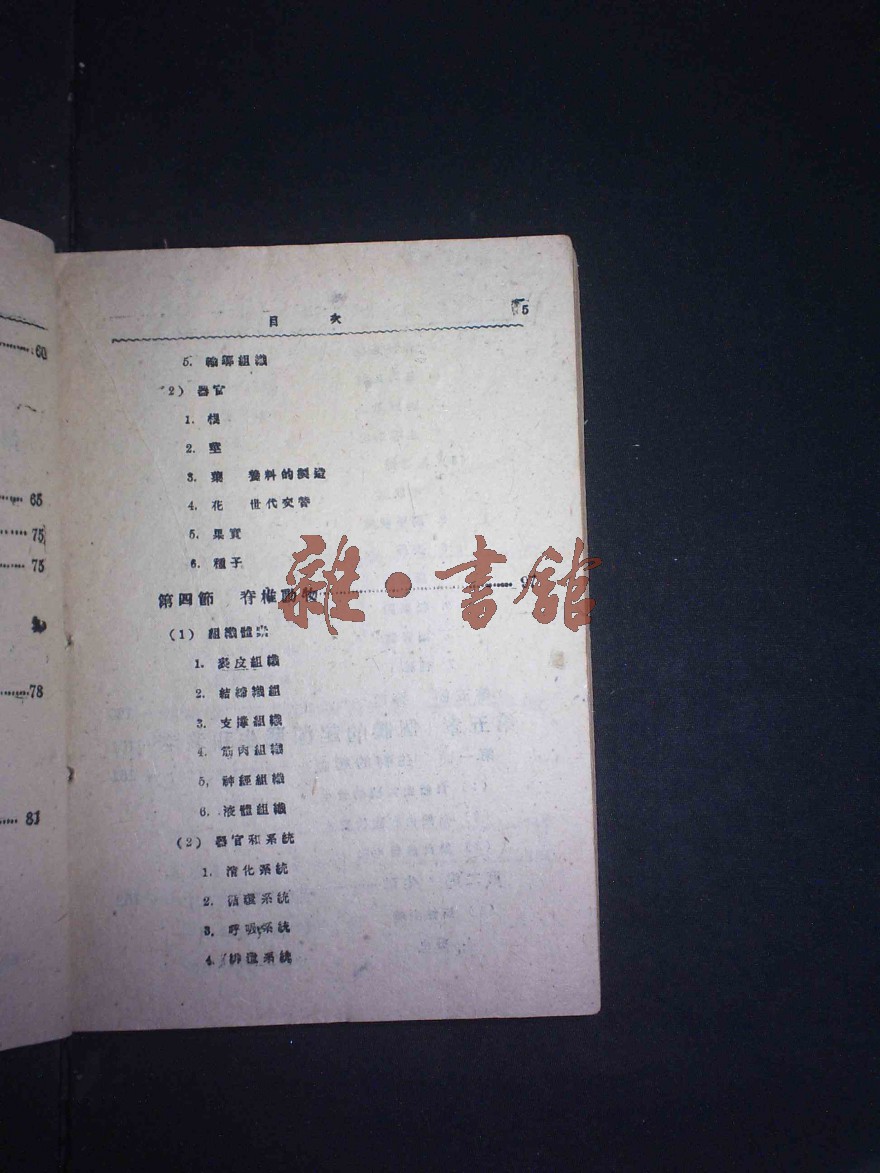 目 次 5
5. 輸導組織
(2) 器官
1. 根
2. 莖
3. 葉 養料的製造
4. 花 世代交替
5. 果實
6. 種子
第四節 脊椎動物
(1) 組織體系
1. 表皮組織
2. 結締織組
3. 支撑組織
4. 筋肉組織
5. 神經組織
6. 液體組織
(2) 器官和系統
1. 消化系統
2. 循環系統
3. 呼吸系統
4. 排泄系統
60
65
75
75
78
81
雜·書館